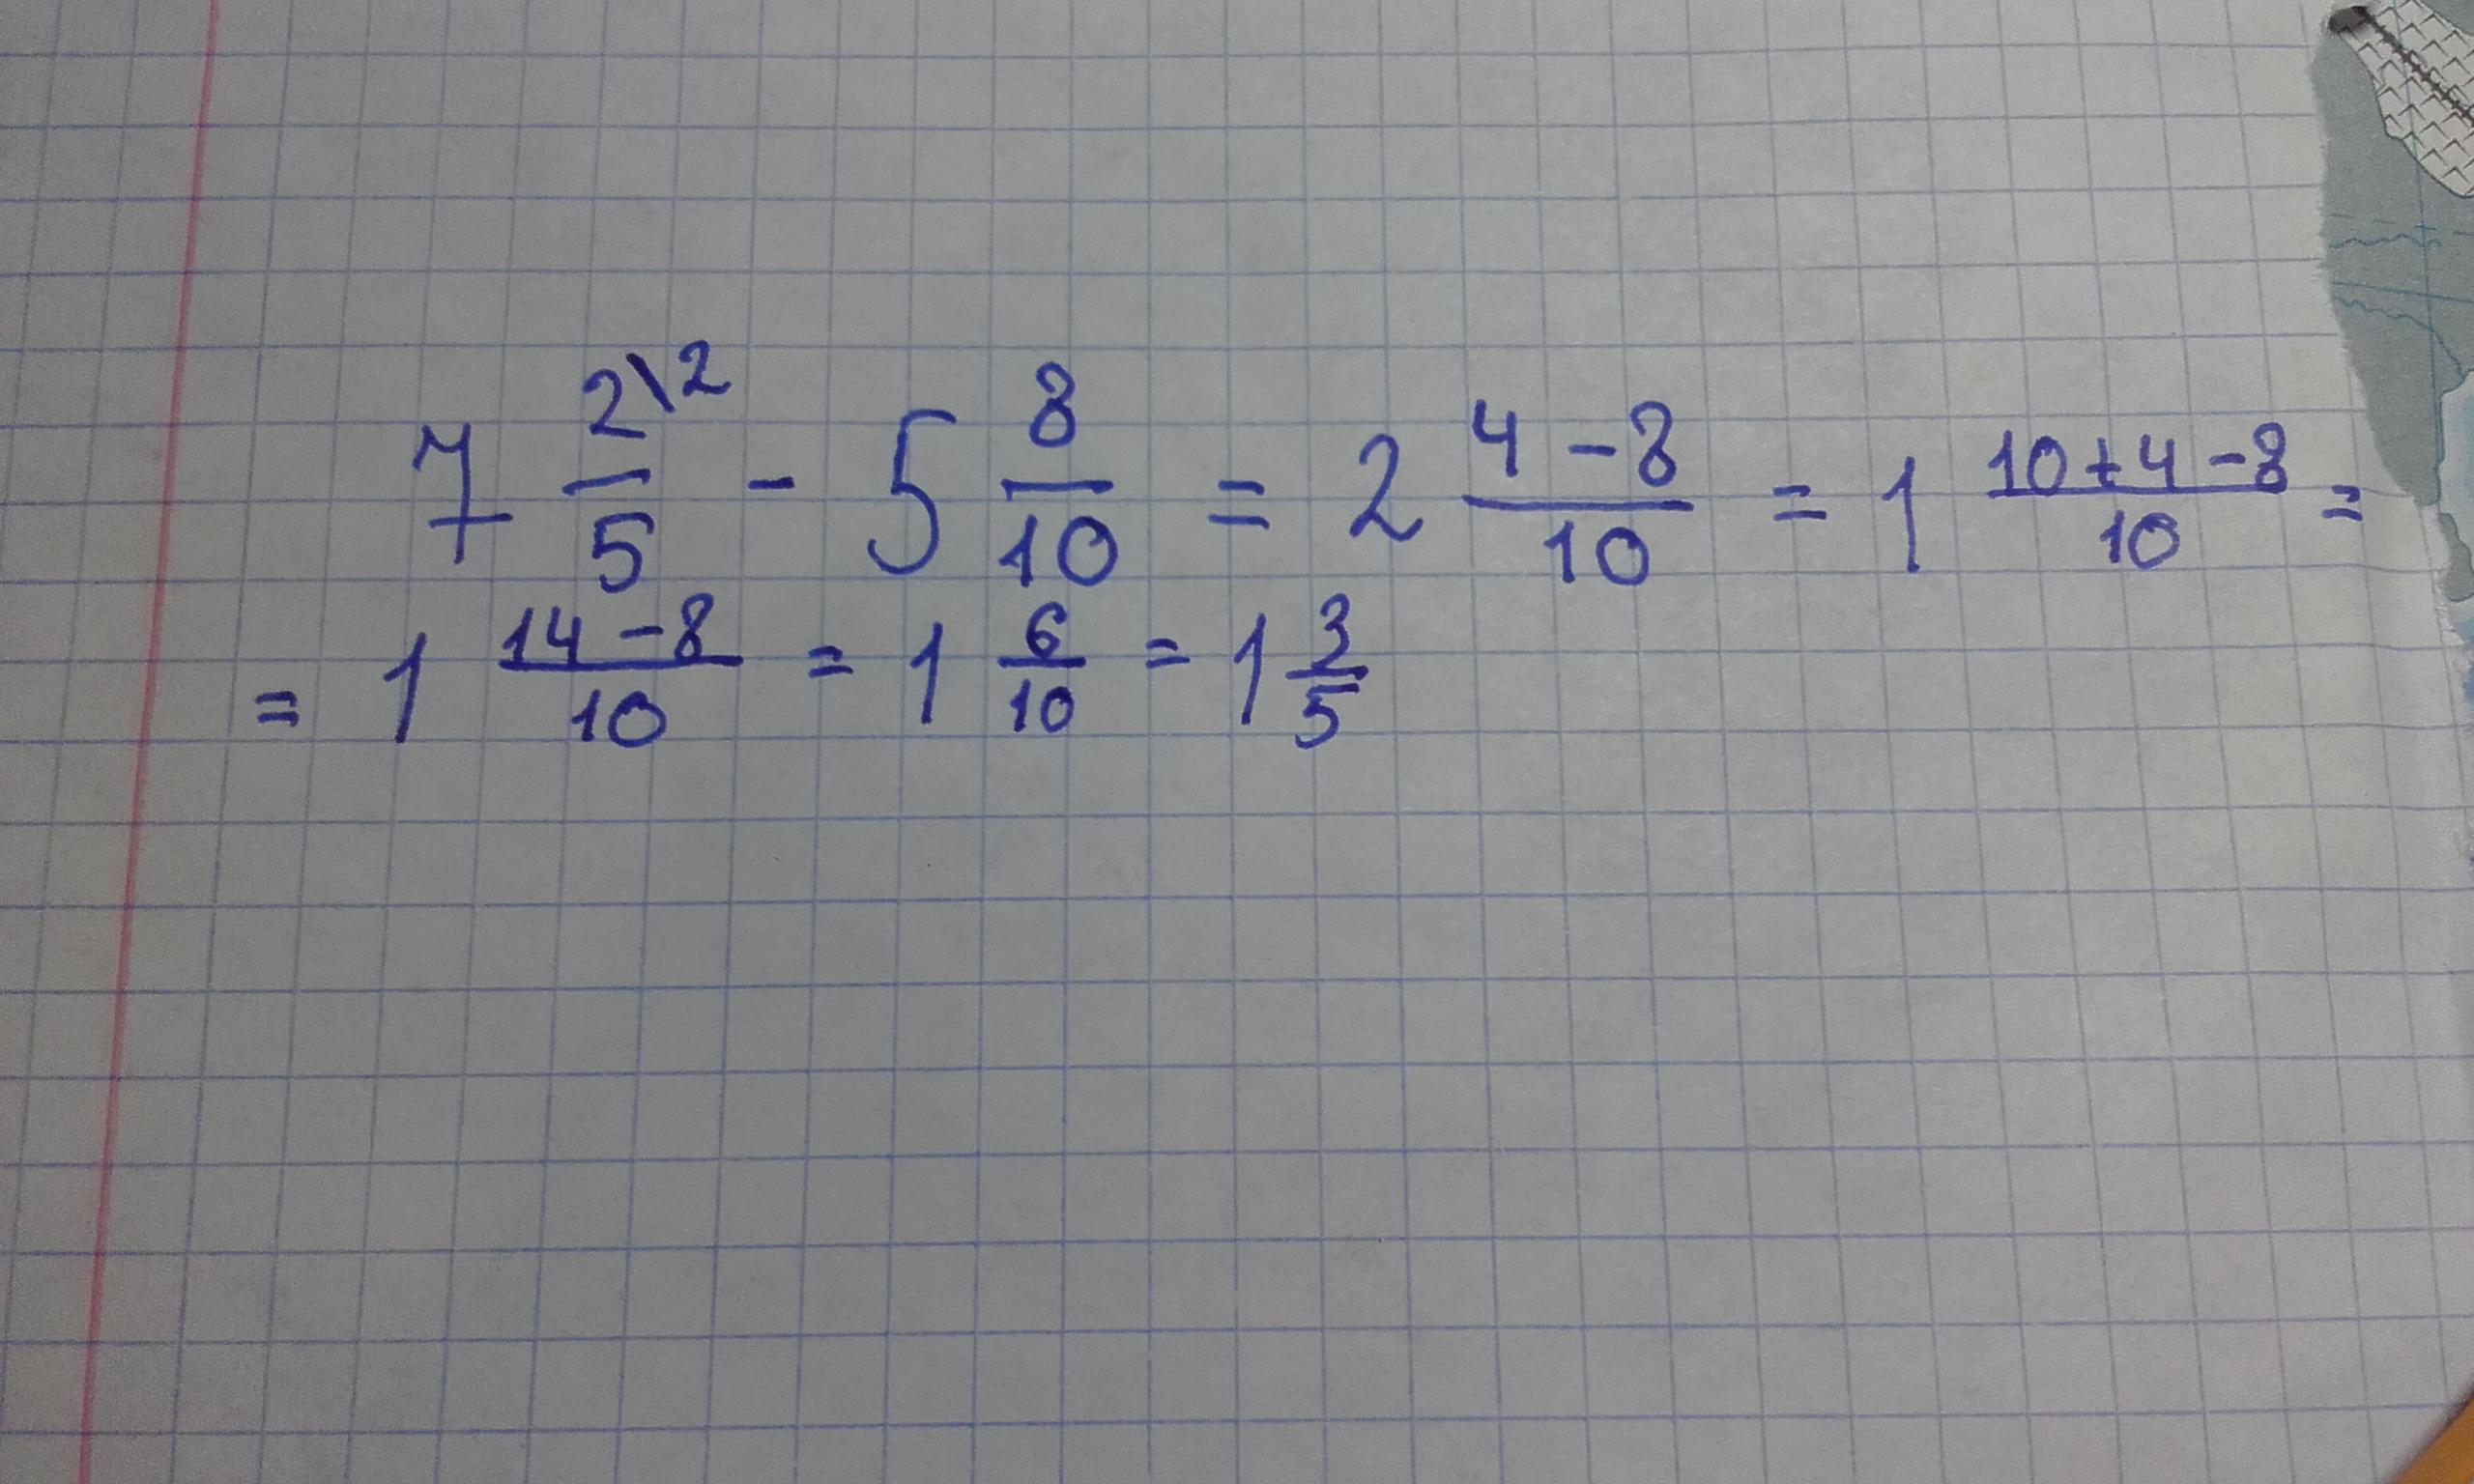 7 2\2/5 - 5 8/10 = 2 4-8/10 = 1 10+4-8/10 =
= 1 14-8/10 = 1 6/10 = 1 3/5